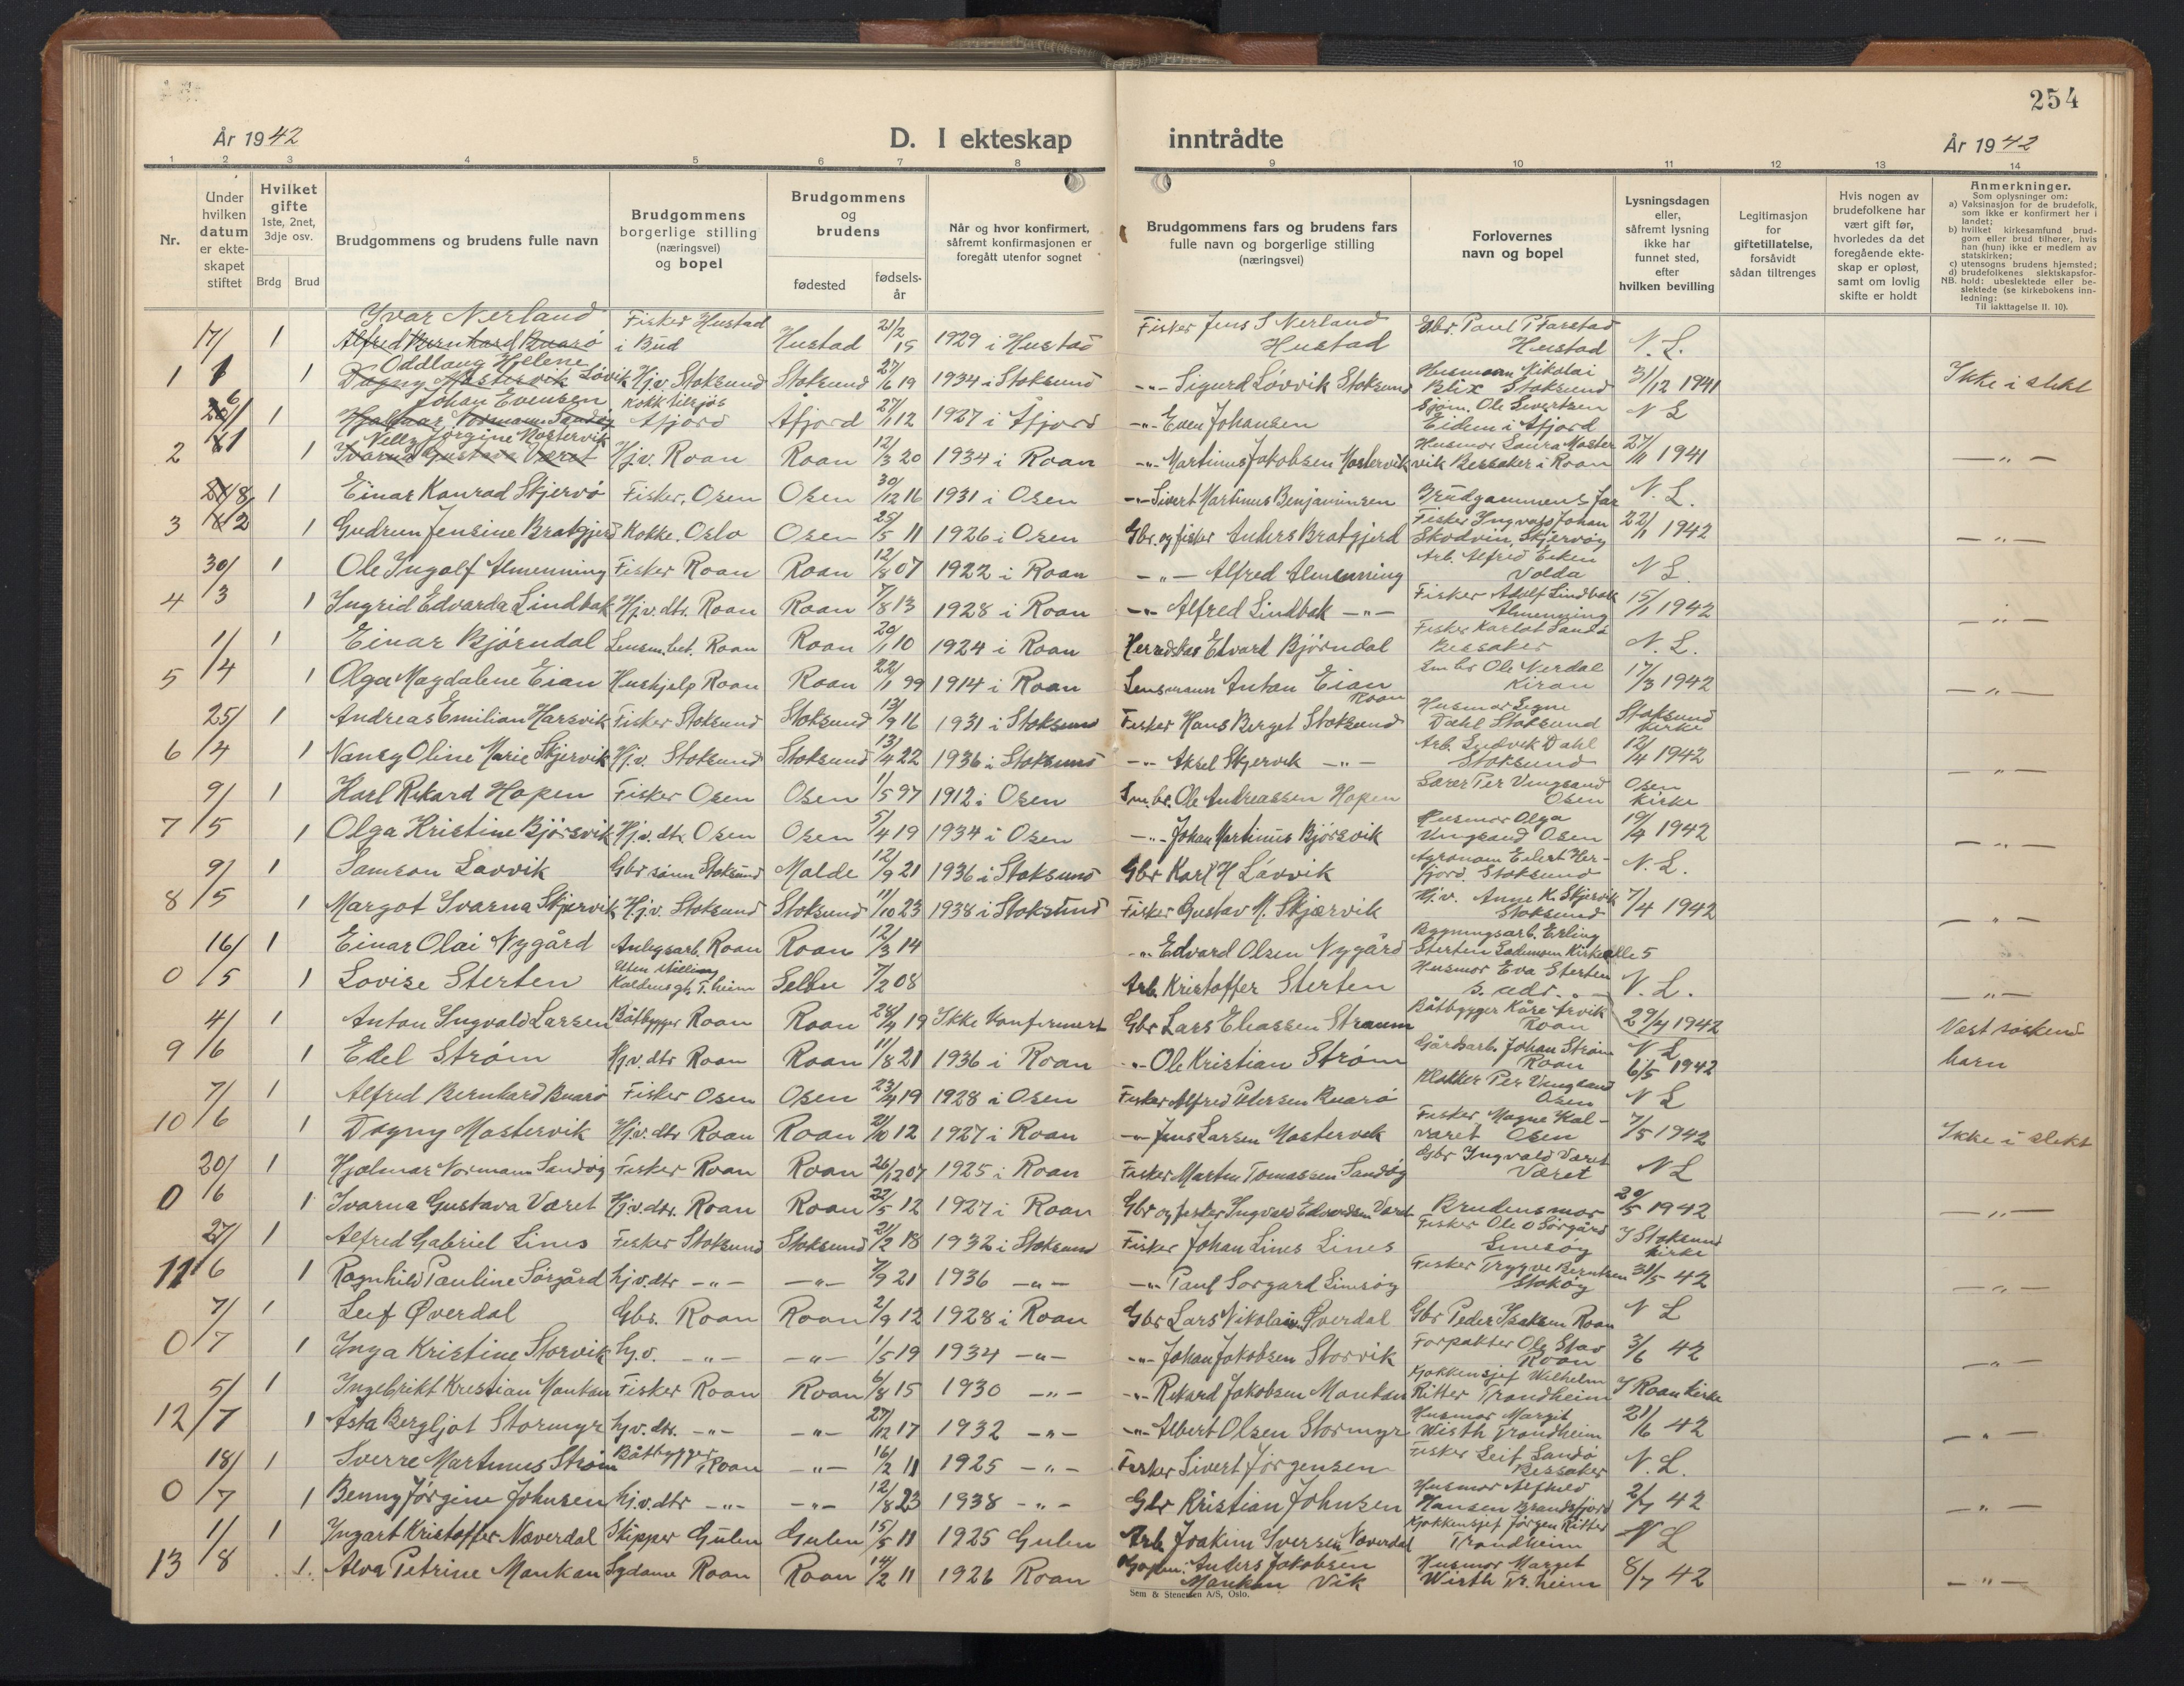 254
År 1942 D. I ekteskap inntrådte År 1942
1 2 3 4 5 6 7 8 9 10 11 12 13 14
Nr.
Under hvilken datum er ekteskapet stiftet
Hvilket gifte 1ste, 2net, 3dje osv.
Brdg Brud
Brudgommens og brudens fulle navn
Brudgommens borgerlige stilling (næringsvei) og bopel
Brudgommens og brudens
fødested fødsels-år
Når og hvor konfirmert, såfremt konfirmasjonen er foregått utenfor sognet
Brudgommens fars og brudens fars fulle navn og borgerlige stilling (næringsvei)
Forlovernes navn og bopel
Lysningsdagen eller, såfremt lysning ikke har funnet sted, efter hvilken bevilling
Legitimasjon for giftetillatelse, forsåvidt sådan tiltrenges
Hvis nogen av brudefolkene har vært gift før, hvorledes da det foregående ekteskap er opløst, samt om lovlig skifte er holdt
Anmerkninger.
Som oplysninger om:
a) Vaksinasjon for de brudefolk, som ikke er konfirmert her i landet;
b) hvilket kirkesamfund brudgom eller brud tilhører, hvis han (hun) ikke er medlem av statskirken;
c) utensogns brudens hjemsted;
d) brudefolkenes slektskapsforhold: ubeslektede eller beslektede (se kirkebokens innledning:
NB. Til iakttagelse II. 10).
17/ 1 Yvar Nerland Fisker Hustad i Bud Hustad 21/2 15 1929 i Hustad Fisker Jens S Nerland Hustad Gbr. Paul P Farstad Hustad N. L.
Alfred Bernhard Buarø
1 1 1 Oddlaug Hjelene Løvik Hj.v. Stoksund Stoksund 27/6 19 1934 i Stoksund -"- Sigurd Løvvik Stoksund Husmann Nikolai Blix Stoksund 31/12 1941 Ikke i slekt
Dagny Mastervik
6/1 1 Johan Evensen Kokk tilsjøs Afjord Åfjord 27/1 12 1927 i Åfjord -"- Even Johansen Sjøm. Ole Sivertsen Eidem i Afjord N L
Hjalmar Normann Sandøy
2 1 Nelly Jørgine Mastervik Hj.v. Roan Roan 12/3 20 1934 i Roan -"- Martinus Jakobsen Mastervik Husmor Laura Mastervik Bessaker i Roan 27/11 1941 -"-
Ivarna Gustava Været
8/ 1 Einar Konrad Skjervø Fisker, Osen Osen 30/12 16 1931 i Osen -"- Sivert Martinus Benjaminsen Brudgommens far N. L.
3 2 1 Gudrun Jensine Bratgjerd Kokke. Oslo Osen 25/5 11 1926 i Osen Gbr. og fisker Anders Bratgjerd Fisker Ingvald Johan Skodvin, Skjervøy 22/1 1942 -"-
30/ 1 Ole Ingolf Almenning Fisker Roan Roan 12/8 07 1922 i Roan -"- Alfred Almenning Arb. Alfred Eiken Volda N L.
4 3 1 Ingrid Edvarda Lindbak Hj.v. dtr. Roan Roan 7/8 13 1928 i Roan -"- Alfred Lindbak -"- Fisker Adolf Lindbak Almenning 15/1 1942 -"-
1/ 1 Einar Bjørndal Lensm.bet. Roan Roan 20/1 10 1924 i Roan Herredskas Edvard Bjørndal Fisker Karlot Sandø Bessaker N. L.
5 4 1 Olga Magdalene Eian Hushjelp Roan Roan 22/1 99 1914 i Roan Lensmann Anton Eian Roan Sm br Ole Nerdal Kiran 17/3 1942 -"-
25/ 1 Andreas Emilian Harsvik Fisker Stoksund Stoksund 13/9 16 1931 i Stoksund Fisker Hans Berget Stoksund Husmor Signe Dahl Stoksund Stoksund Kirke
6 4 1 Nancy Oline Marie Skjervik Hj.v. Stoksund Stoksund 13/4 22 1936 i Stoksund -"- Aksel Skjervik -"- Arb. Ludvik Dahl Stoksund 12/4 1942 -"-
9/ 1 Karl Rikard Hopen Fisker Osen Osen 1/5 97 1912 i Osen Sm.br. Ole Andreassen Hopen Lærer Per Vingsand Osen Osen Kirke
7 5 1 Olga Kristine Bjørsvik Hj.v. dtr. Osen Osen 5/4 19 1934 i Osen -"- Johan Martinus Bjørsvik Husmor Olga Vingsand Osen 19/4 1942 -"-
9/ 1 Samson Løvvik Gbr sønn Stoksund Malde 12/9 21 1936 i Stoksund Gbr Karl H Løvvik Agronom Eilert Herfjord. Stoksund N. L.
8 5 1 Margot Ivarna Skjervik Hj.v. Stoksund Stoksund 11/10 23 1938 i Stoksund Fisker Gustav M. Skjærvik Hj.v. Anne K. Skjervik Stoksund 7/4 1942 -"-
16/ 1 Einar Olai Nygård Anlegsarb. Roan Roan 12/3 14 -"- Edvard Olsen Nygård Bygningsarb. Erling Sterten Lademoen Kirkealle 5
0 5 1 Lovise Sterten Uten stilling T.heim Selbu 7/2 08 Arb. Kristoffer Sterten Husmor Eva Sterten s. adr. N. L. -"-
4/ 1 Anton Ingvald Larsen Båtbygger Roan Roan 28/4 19 Ikke konfirmert Gbr Lars Eliassen Straum Båtbygger Kåre Arvik Roan 29/4 1942 Næst søskend
9 6 1 Edel Strøm Hj.v. dtr Roan Roan 11/8 21 1936 i Roan -"- Ole Kristian Strøm Gårdsarb. Johan Strøm Roan N L 6/5 1942 barn
7/ 1 Alfred Bernhard Buarø Fisker Osen Osen 23/4 19 1928 i Osen Fisker Alfred Pedersen Buarø Klokker Per Vingsand Osen N L
10 6 1 Dagny Mastervik Hj.v. dtr Roan Roan 21/10 12 1927 i Roan -"- Jens Larsen Mastervik Fisker Magne Halvaret Osen 7/5 1942 Ikke i slekt
20/ 1 Hjalmar Normann Sandøy Fisker Roan Roan 26/12 07 1925 i Roan Fisker Martin Tomassen Sandøy Gbr Ingvald Været Været N L
0 6 1 Ivarna Gustava Været Hj.v. dtr. Roan Roan 22/5 12 1927 i Roan Gbr og fisker Ingvald Edvardsen Været Brudens mor 20/5 1942 -"-
27/ 1 Alfred Gabriel Lines Fisker Stoksund Stoksund 21/2 18 1932 i Stoksund Fisker Johan Lines Lines Fisker Ole O Sørgård Linesøy I Stoksund Kirke
11 6 1 Ragnhild Pauline Sørgård hj.v. dtr -"- -"- 7/9 21 1936 -"- -"- Paul Sørgard Linesøy Fisker Trygve Berntsen Stokøy 31/5 42 -"-
7/ 1 Leif Øverdal Gbr. Roan Roan 2/9 12 1928 i Roan Gbr Lars Nikolai Øverdal Gbr Peder Isaksen Roan N L
0 7 1 Inga Kristine Storvik hj.v. -"- -"- 1/5 19 1934 -"- -"- Johan Jakobsen Storvik Forpakter Ole Stav Roan 3/6 42 -"-
5/ 1 Ingebrikt Kristian Mankan Fisker Roan Roan 6/8 15 1930 -"- -"- Rikard Jakobsen Mankan Kjøkkensjef Wilhelm Ritter Trondheim I Roan Kirke
12 7 1 Asta Bergljot Stormyr hj.v. dtr. -"- -"- 27/12 17 1932 -"- -"- Albert Olsen Stormyr Husmor Margit Wisth Trondheim 21/6 42 -"-
18/ 1 Sverre Martinus Strøm Båtbygger Roan -"- 16/2 11 1925 -"- Fisker Sivert Jørgensen Fisker Leif Sandø Bessaker N. L.
0 7 1 Benny Jørgine Johnsen hj.v. dtr -"- -"- 12/8 23 1938 -"- Gbr Kristian Johnsen Husmor Alfhild Hansen Brandsfjord 2/7 42 -"-
1/ 1 Ingart Kristoffer Nøverdal Skipper Gulen Gulen 15/5 11 1925 Gulen Arb. Joakim Iversen Nøverdal Kjøkkensjef Jørgen Ritter Trondheim N L
13 8 1. Alva Petrine Mankan Sydame Roan Roan 14/2 11 1926 Roan Anders Jakobsen Mankan Vik Husmor Marget Wisth Tr.heim 8/7 42 -"-
Sem & Stenersen A/S, Oslo.